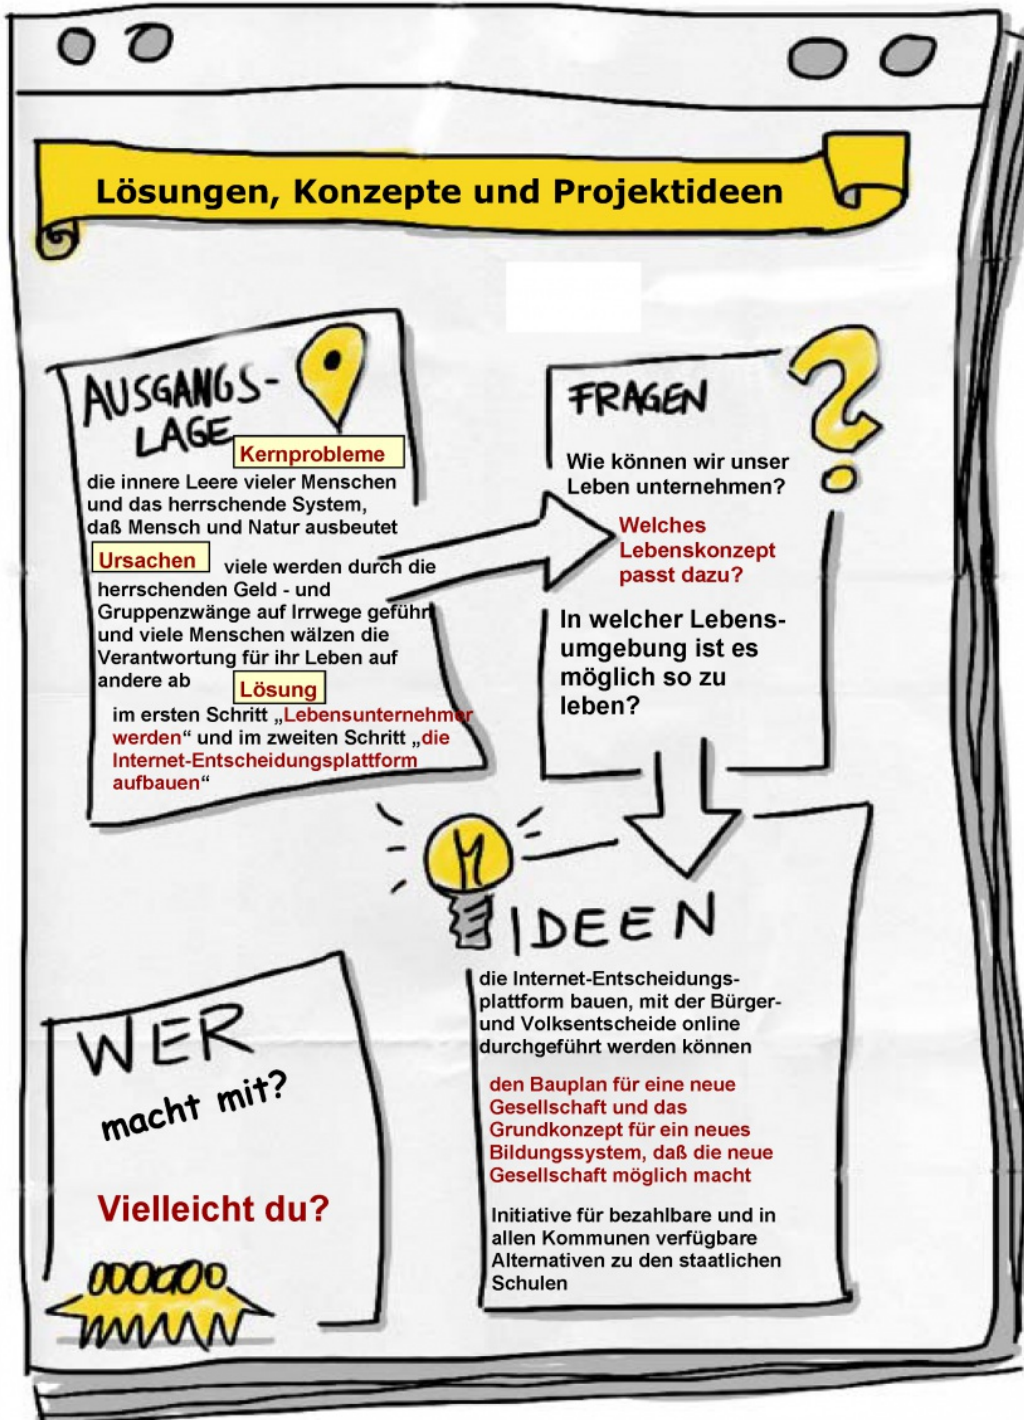 Lösungen, Konzepte und Projektideen
AUSGANGS-
LAGE
Kernprobleme
die innere Leere vieler Menschen
und das herrschende System,
daß Mensch und Natur ausbeutet
Ursachen
viele werden durch die
herrschenden Geld - und
Gruppenzwänge auf Irrwege geführt
und viele Menschen wälzen die
Verantwortung für ihr Leben auf
andere ab
Lösung
im ersten Schritt „Lebensunternehmer
werden“ und im zweiten Schritt „die
Internet-Entscheidungsplattform
aufbauen“
FRAGEN
Wie können wir unser
Leben unternehmen?
Welches
Lebenskonzept
passt dazu?
In welcher Lebens-
umgebung ist es
möglich so zu
leben?
IDEEN
die Internet-Entscheidungs-
plattform bauen, mit der Bürger-
und Volksentscheide online
durchgeführt werden können
den Bauplan für eine neue
Gesellschaft und das
Grundkonzept für ein neues
Bildungssystem, daß die neue
Gesellschaft möglich macht
Initiative für bezahlbare und in
allen Kommunen verfügbare
Alternativen zu den staatlichen
Schulen
WER
macht mit?
Vielleicht du?